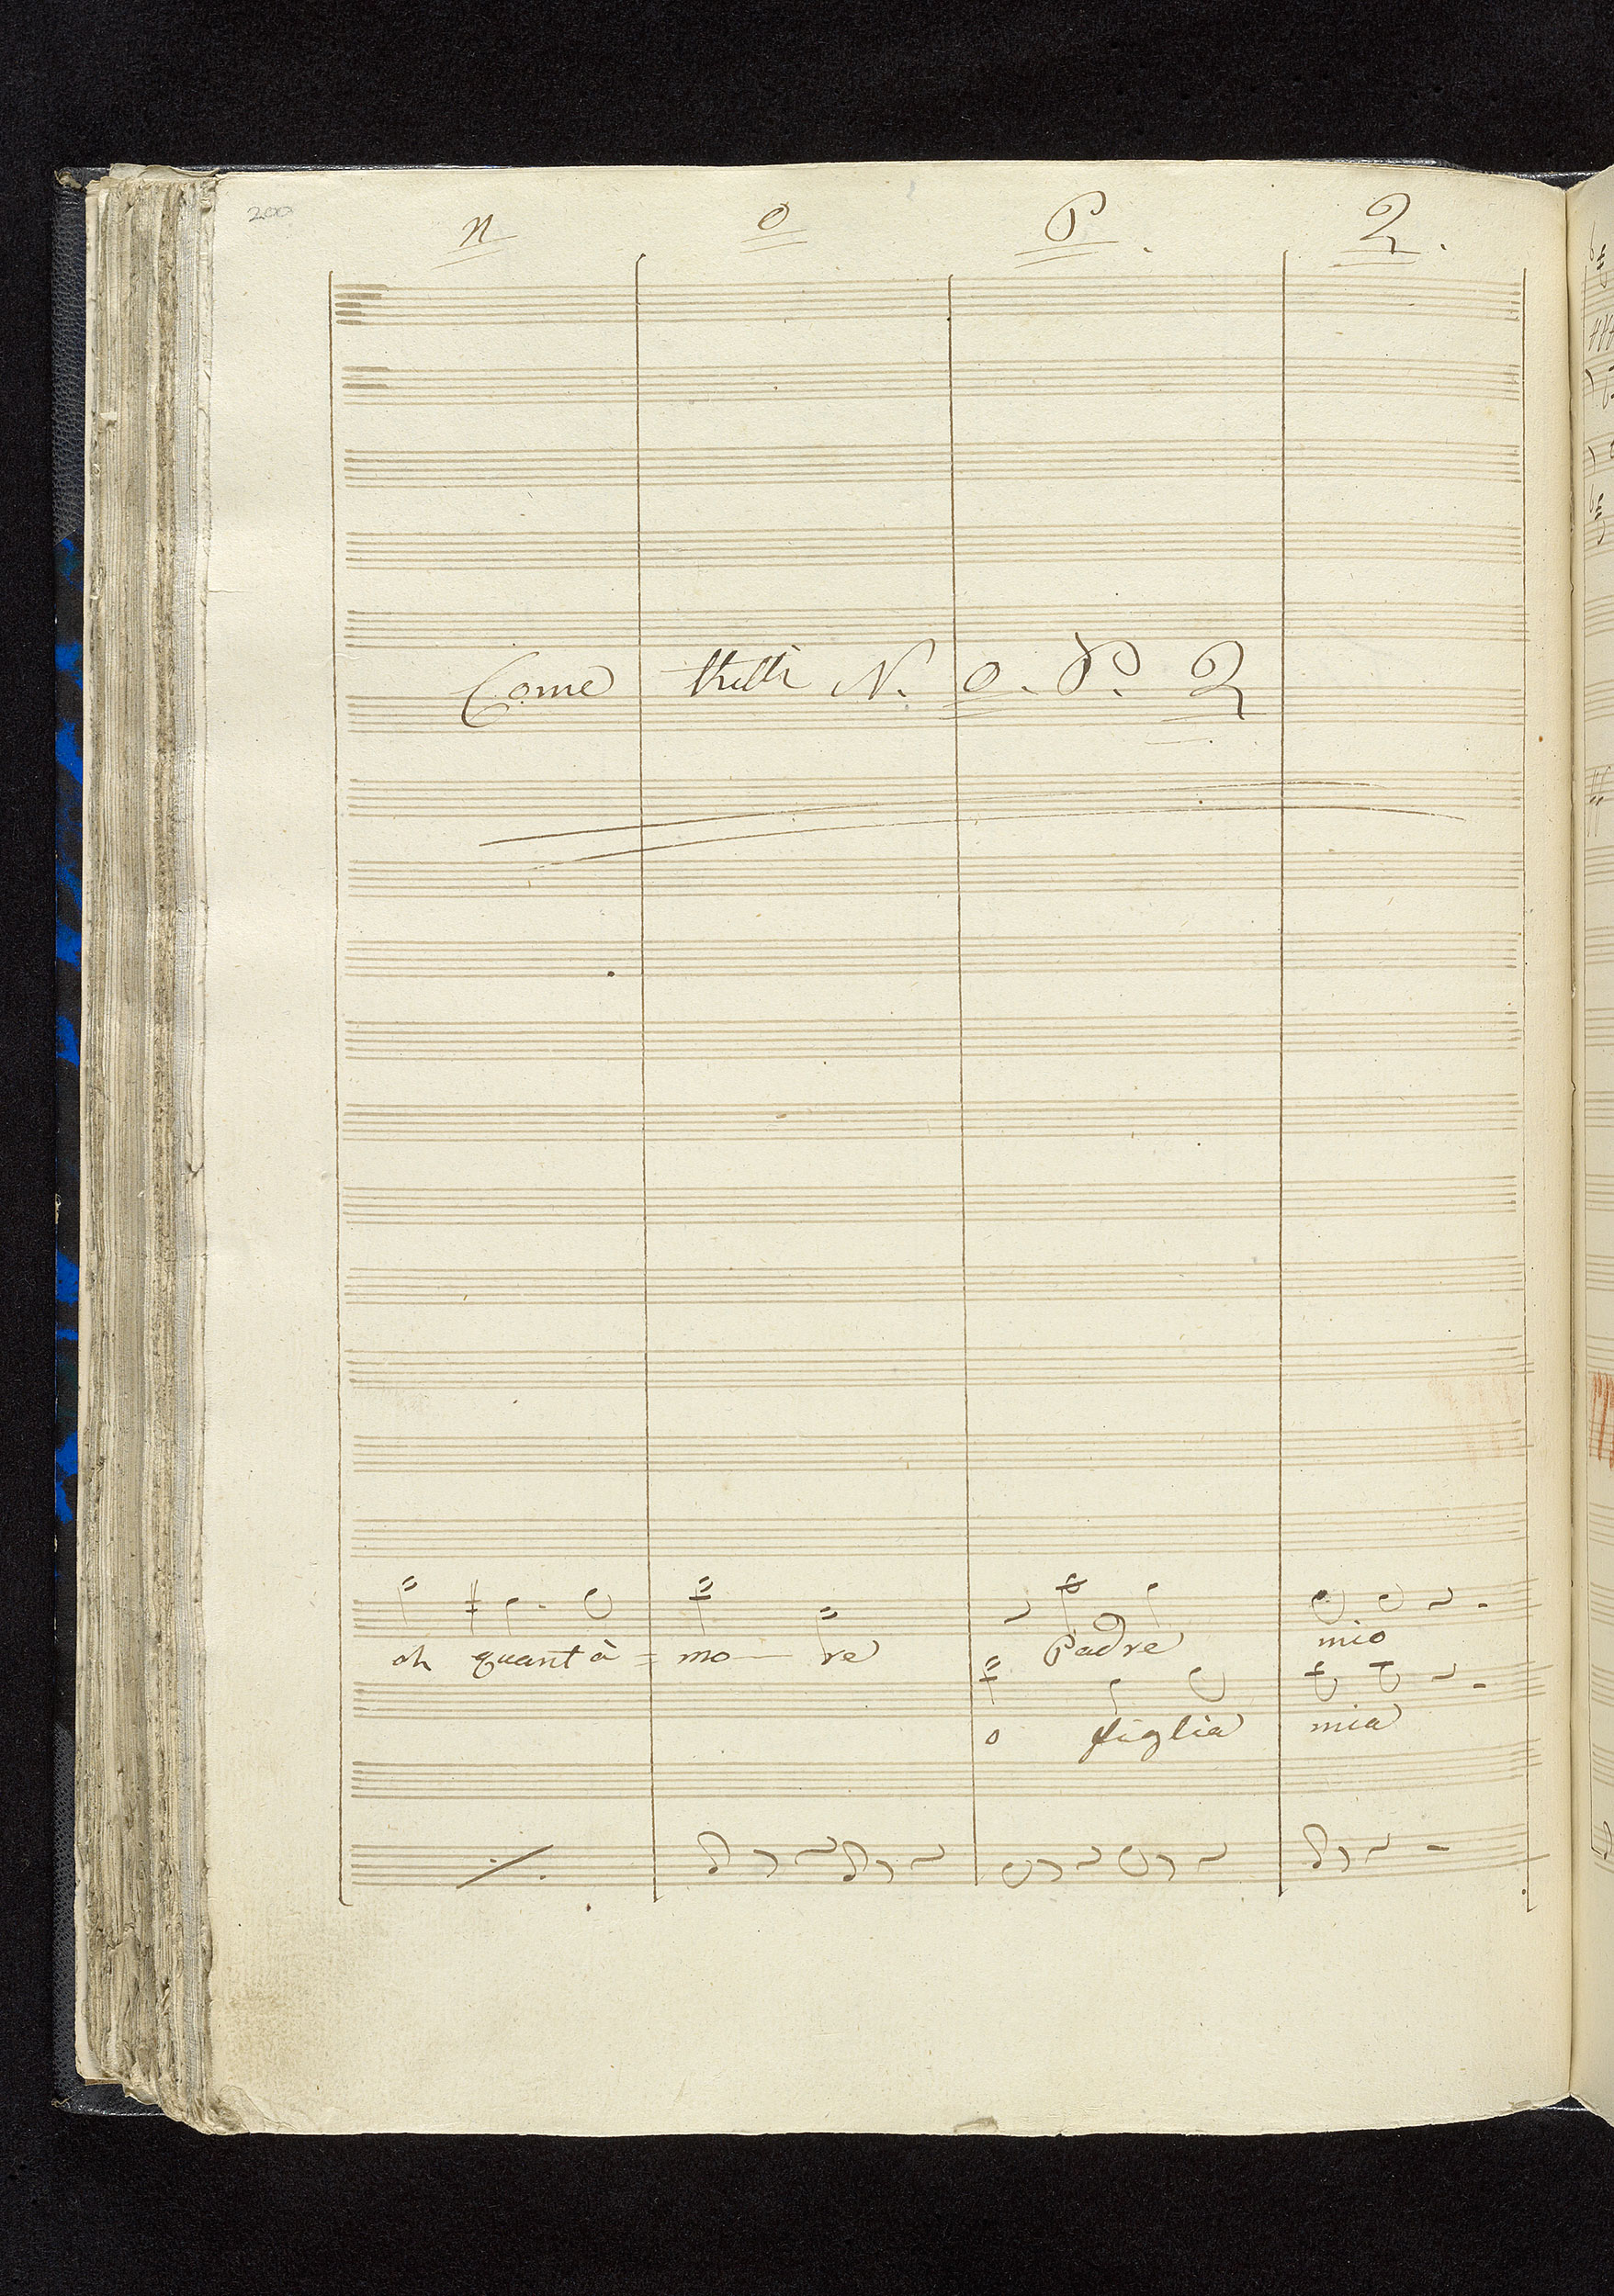 200
n o P. Q.
Come tutti N. O. P. Q
oh quant à = mo — re Padre mio
o figlia mia